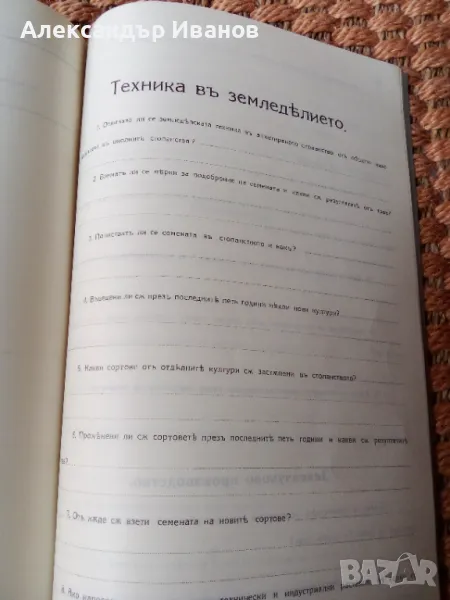 Александър Иванов
Техника въ земледѣлието.
1. Отличава ли се земледѣлската техника въ
стопанство отъ
стопанства?
2. Взематъ ли се мѣрки за подобрение на семената и какви сѫ резултатитѣ отъ това?
3. Почистватъ ли се семената въ стопанството и какъ?
4. Въведени ли сѫ презъ последнитѣ петь години нѣкои нови култури?
5. Какви сортове отъ отдѣлнитѣ култури сѫ застѫпени въ стопанството?
6. Промѣнени ли сѫ сортоветѣ презъ последнитѣ петь години и какви сѫ резултатитѣ
7. Отъ кѫде сѫ взети семената на новитѣ сортове?
технически и индустриални
bazar